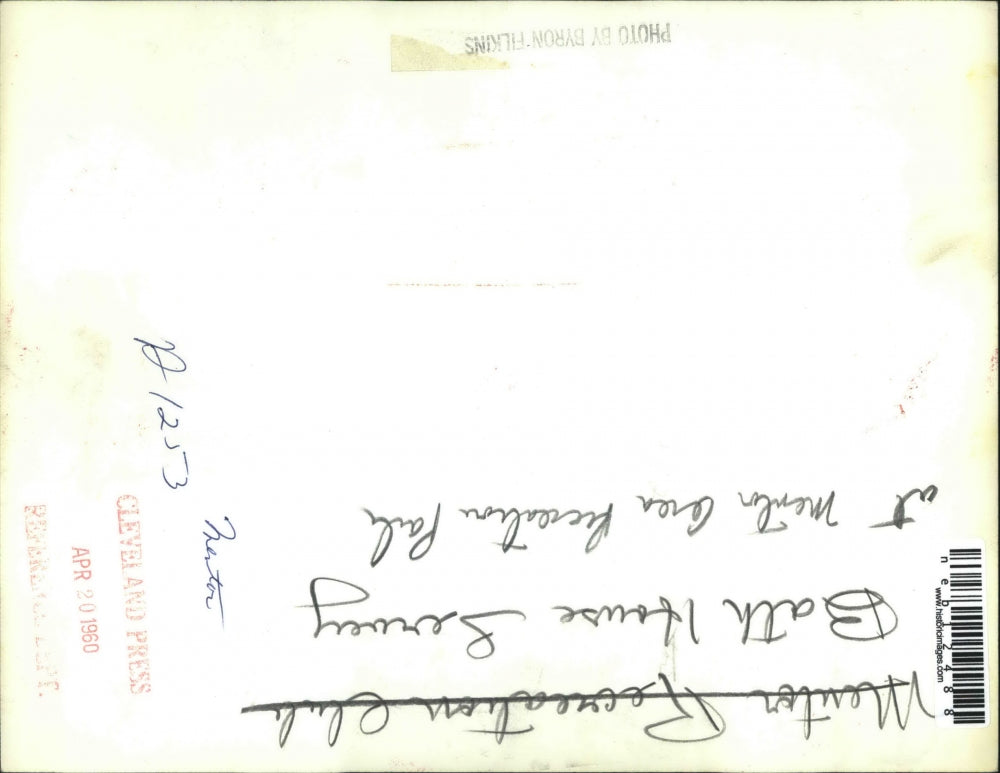 Mentor Recreation Club
Bath House Servey
at Mentor Area Recreation Park
PHOTO BY BYRON FILKINS
D 1253
Mentor
CLEVELAND PRESS
APR 20 1960
REFERENCE DEPT.
neb12488
www.historicimages.com